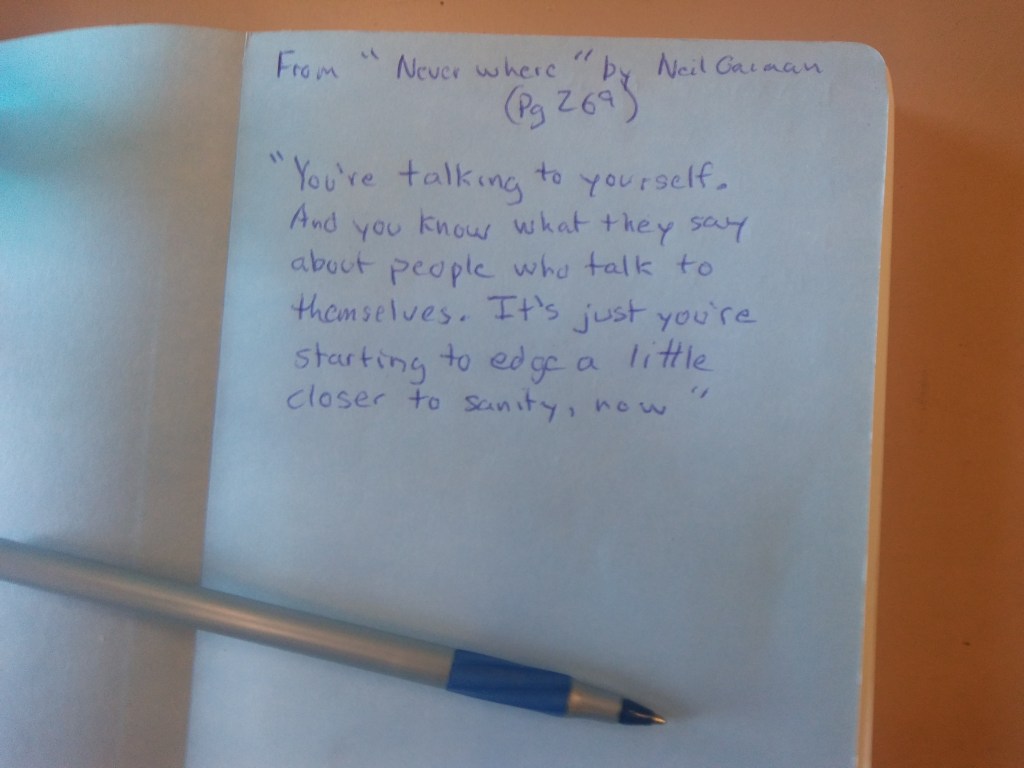 From "Never where" by Neil Gaiman
(Pg 269)
"You're talking to yourself.
And you know what they say
about people who talk to
themselves. It's just you're
starting to edge a little
closer to sanity, now"